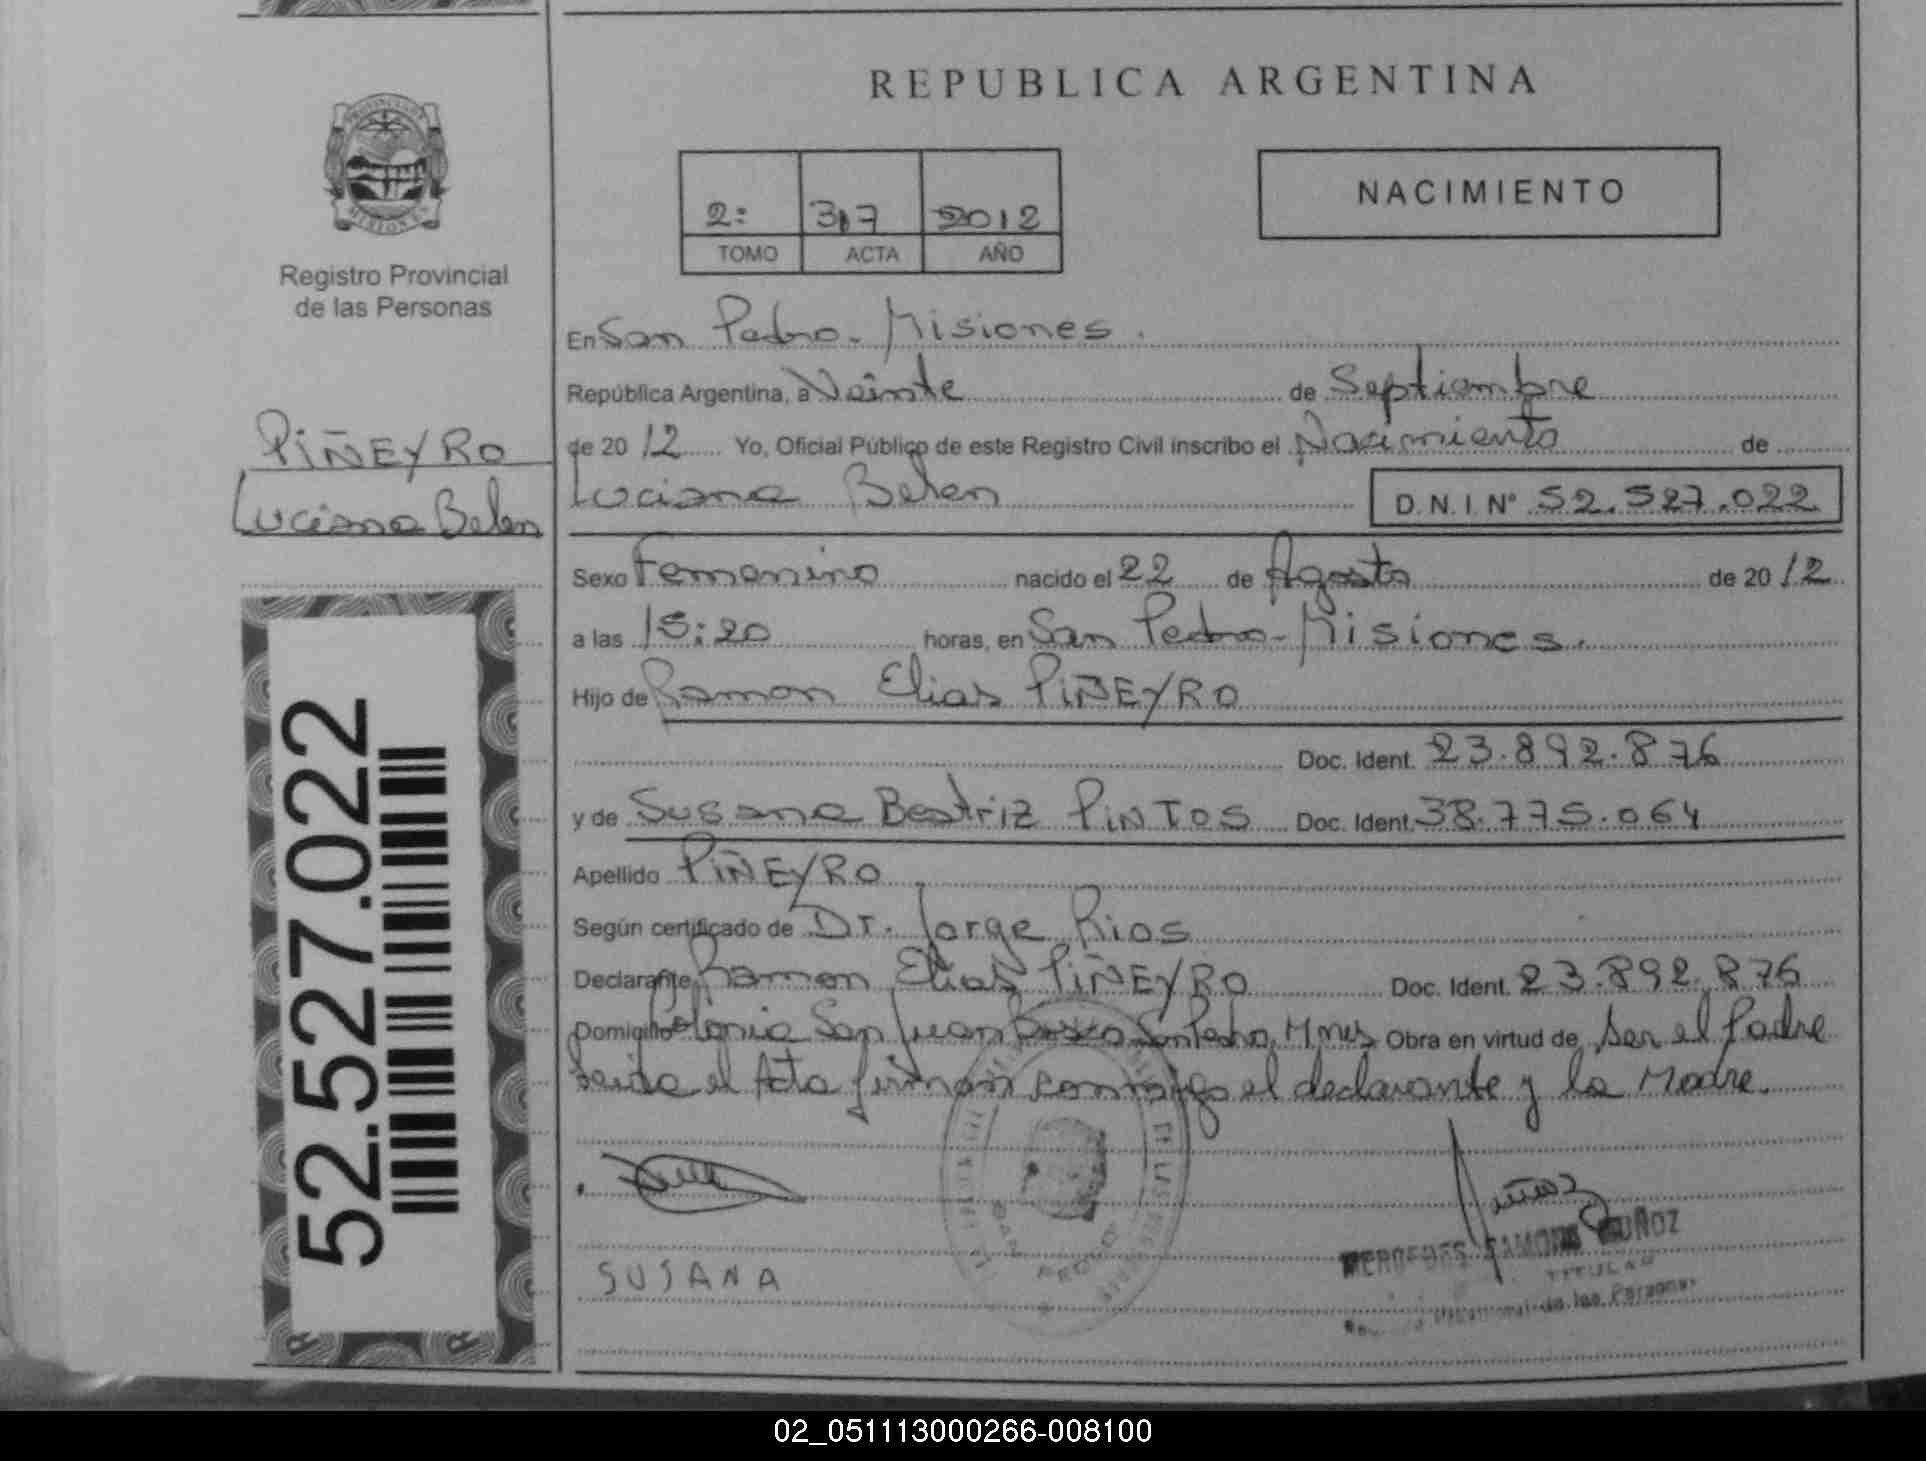 REPUBLICA ARGENTINA
NACIMIENTO
2: 317 2012
TOMO ACTA AÑO
PROVINCIA DE
MISIONES
Registro Provincial
de las Personas
PIÑEYRO
Luciana Belen
52.527.022
En San Pedro - Misiones.
República Argentina, a Veinte de Septiembre
de 2012 Yo, Oficial Público de este Registro Civil inscribo el Nacimiento de
Luciana Belen D.N.I. N° 52.527.022
Sexo Femenino nacido el 22 de Agosto de 2012
a las 15:20 horas, en San Pedro - Misiones.
Hijo de Ramon Elias PIÑEYRO
Doc. Ident. 23.892.876
y de Susana Beatriz PINTOS Doc. Ident. 38.775.064
Apellido PIÑEYRO
Según certificado de Dr. Jorge Rios
Declarante Ramon Elias PIÑEYRO Doc. Ident. 23.892.876
Domicilio Colonia San Juan Bosco San Pedro, Mnes Obra en virtud de ser el Padre
Leida el Acta firman conmigo el declarante y la Madre.
SUSANA
SAN PEDRO
MERCEDES RAMONA MUÑOZ
TITULAR
Registro Provincial de las Personas
02_051113000266-008100